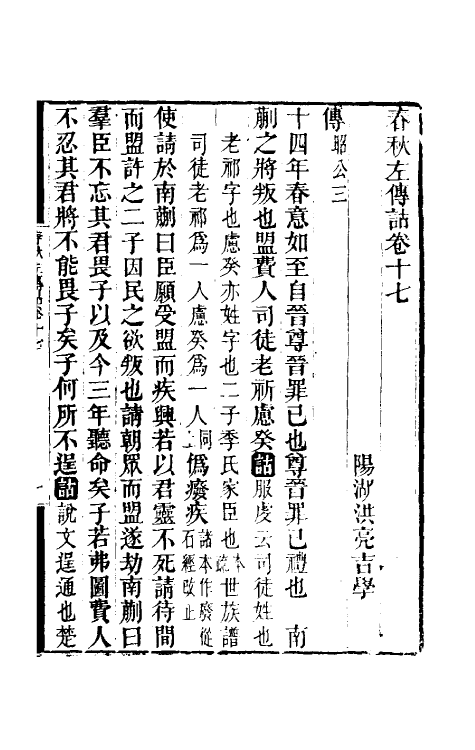 春秋左傳詁卷十七
陽湖洪亮吉學
傳昭公三
十四年春意如至自晉尊晉罪己也尊晉罪己禮也　南
蒯之將叛也盟費人司徒老祁慮癸詁服虔云司徒姓也
老祁字也慮癸亦姓字也二子季氏家臣也本疏世族譜
司徒老祁爲一人慮癸爲一人同上僞癈疾諸本作廢從石經改正
使請於南蒯曰臣願受盟而疾興若以君靈不死請待間
而盟許之二子因民之欲叛也請朝眾而盟遂劫南蒯曰
羣臣不忘其君畏子以及今三年聽命矣子若弗圖費人
不忍其君將不能畏子矣子何所不逞詁說文逞通也楚